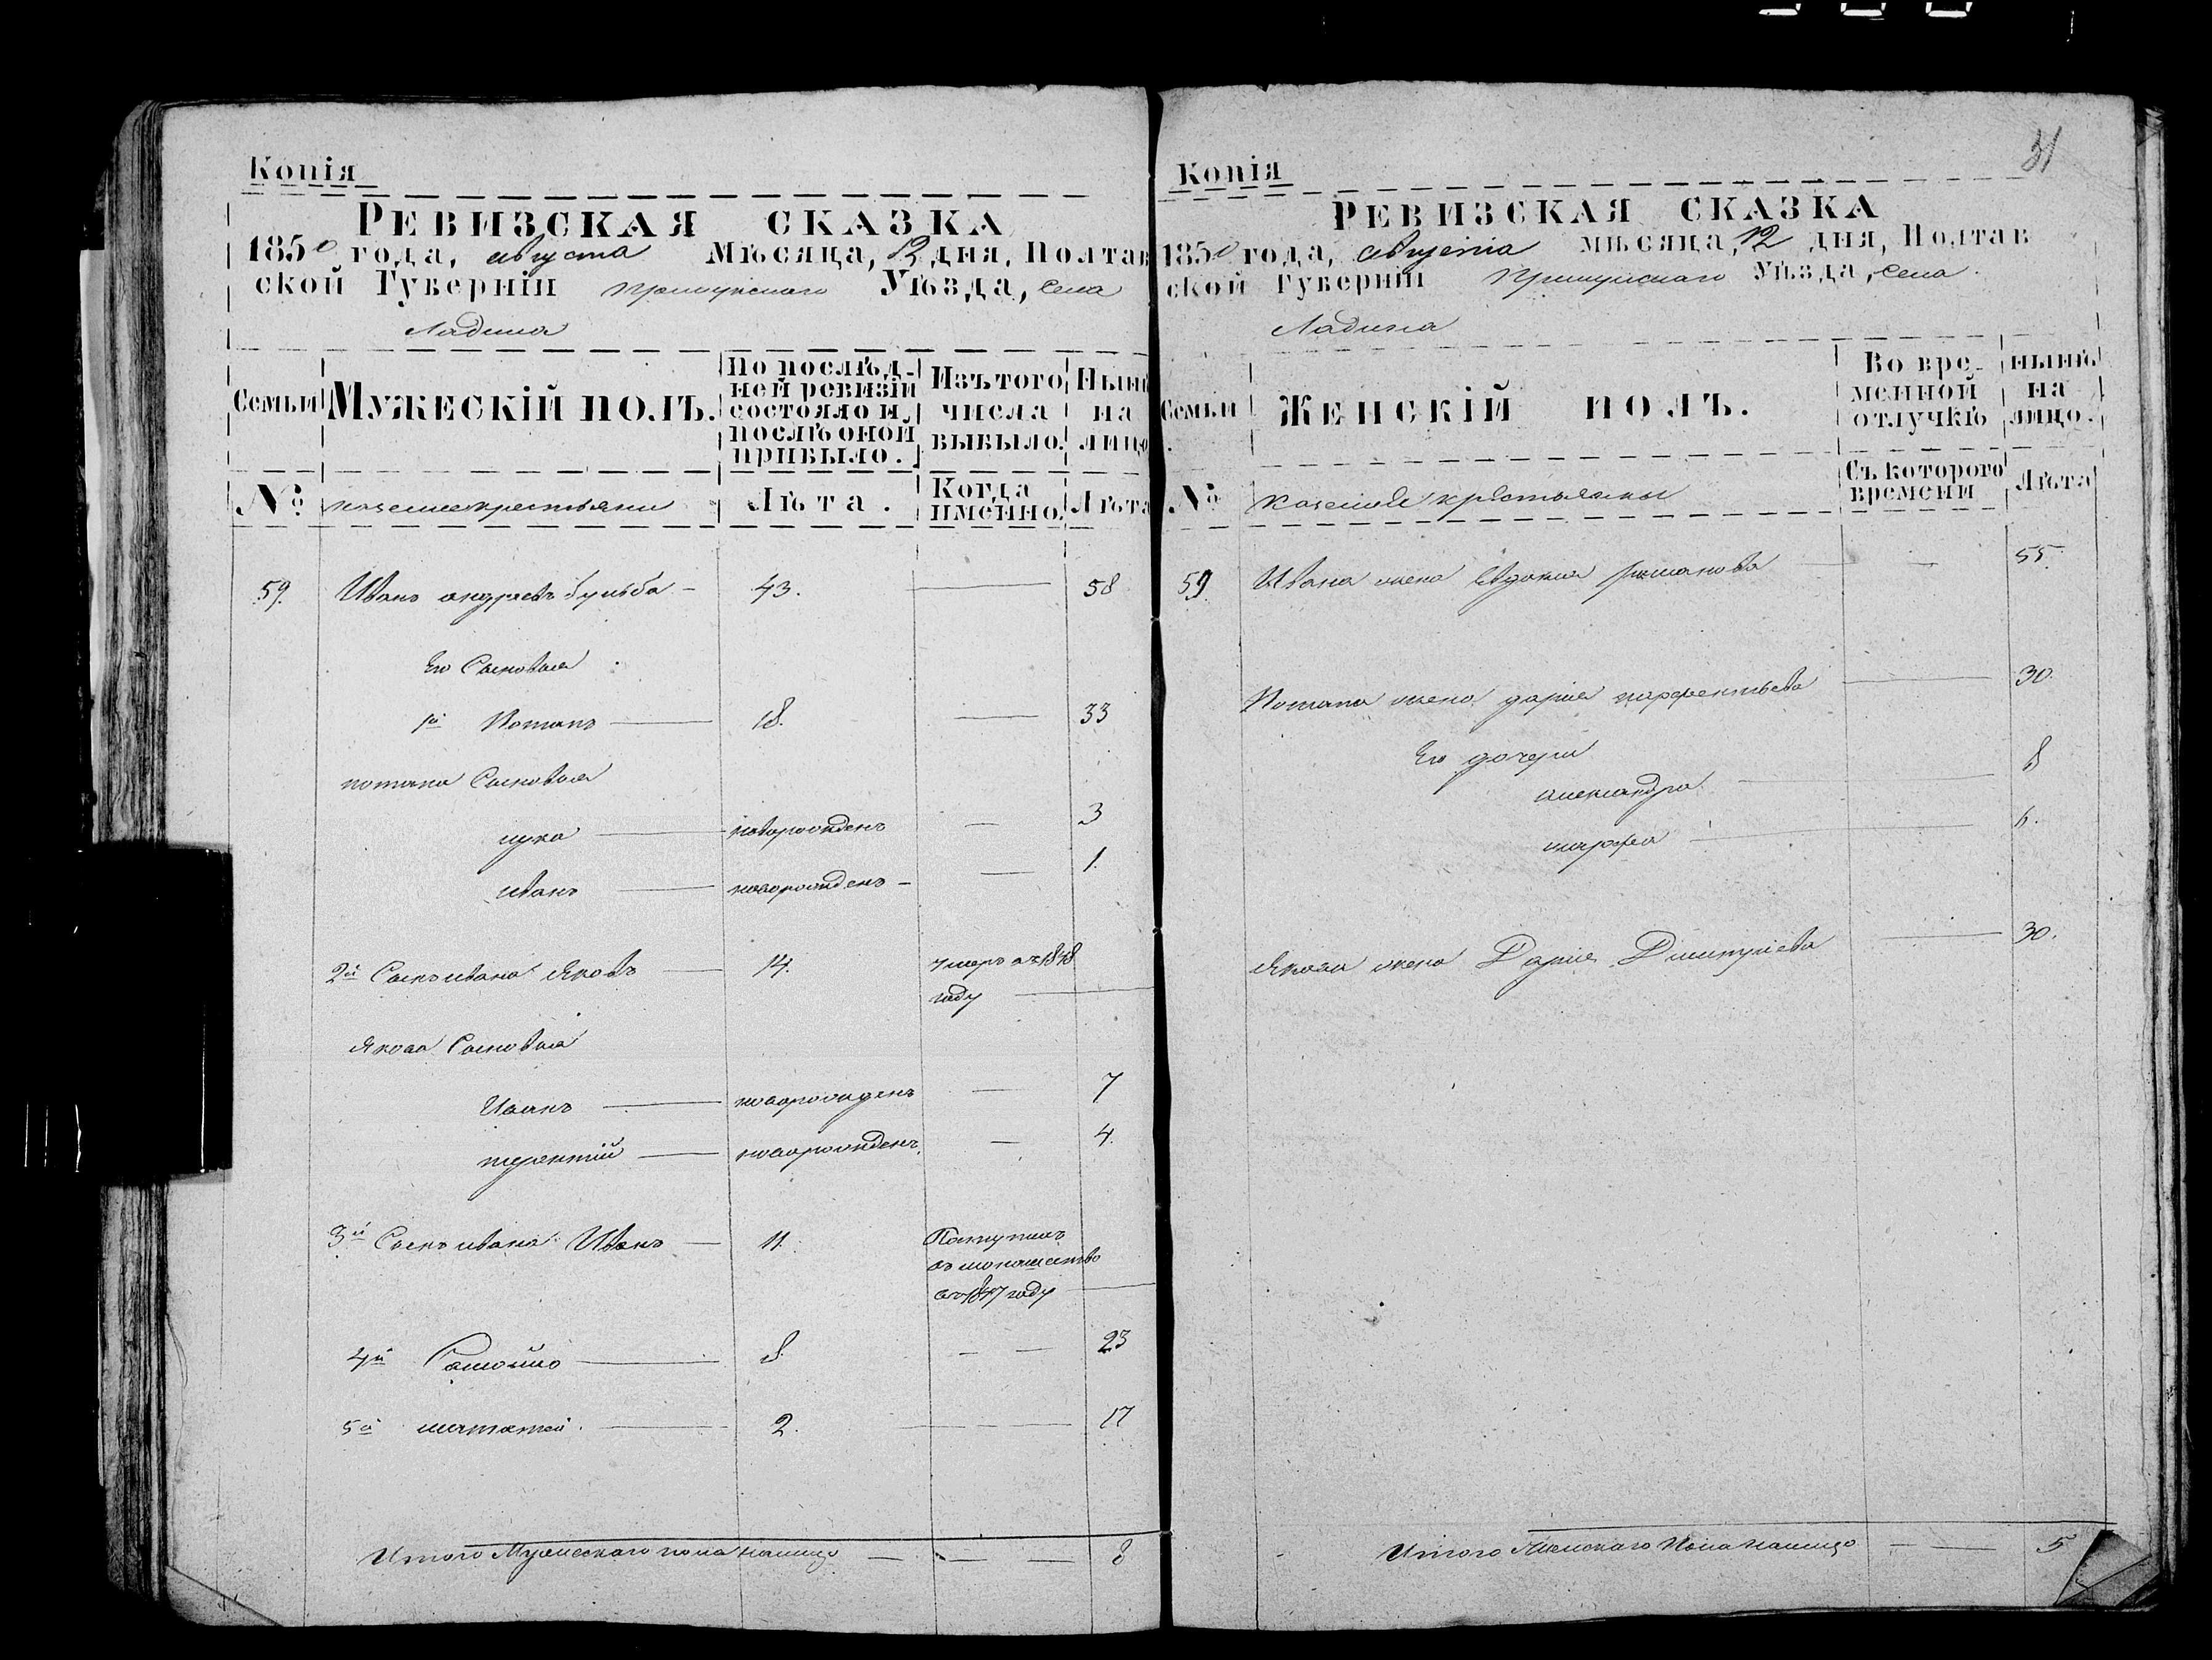 Копія
РЕВИЗСКАЯ СКАЗКА
1850 года, августа Мѣсяца, 12 дня, Полтав
ской Губерніи Прилуцкаго Уѣзда, села
Ладина
Семьи
МУЖЕСКІЙ ПОЛЪ.
По послѣд-
ней ревизіи
состояло и
послѣ оной
прибыло.
Изъ того
числа
выбыло.
Нынѣ
на
лицо
№
казенные крестьяне
Лѣта.
Когда
именно.
Лѣта
59. Иванъ андреевъ бульба - 43. 58
Его Сыновья
1й Потапъ 18. 33
потапа Сыновья
лука новорожденъ 3
иванъ новорожденъ 1.
2й Сынъ ивана Яковъ 14. умеръ въ 1848
году
Якова Сыновья
Иванъ новорожденъ 7
терентій новорожденъ 4.
3й Сынъ ивана Иванъ 11. Поступилъ
въ монашество
въ 1847 году
4й Самойло 8. 23
5й матвей 2. 17
Итого Мужескаго пола налицо 8
31
Копія
РЕВИЗСКАЯ СКАЗКА
1850 года, августа мѣсяца, 12 дня, Полтав
ской Губерніи Прилуцкаго Уѣзда, села
Ладина
Семьи
ЖЕНСКІЙ ПОЛЪ.
Во вре-
менной
отлучкѣ
нынѣ
на
лицо.
№
казенные крестьянки
Съ котораго
времени
Лѣта
59 Ивана жена Евдокия романова 55.
Потапа жена дарія парфентьева 30.
Его дочери
александра 8
марфа 6.
Якова жена Дарія Дмитріева 30.
Итого Женскаго Пола налицо 5